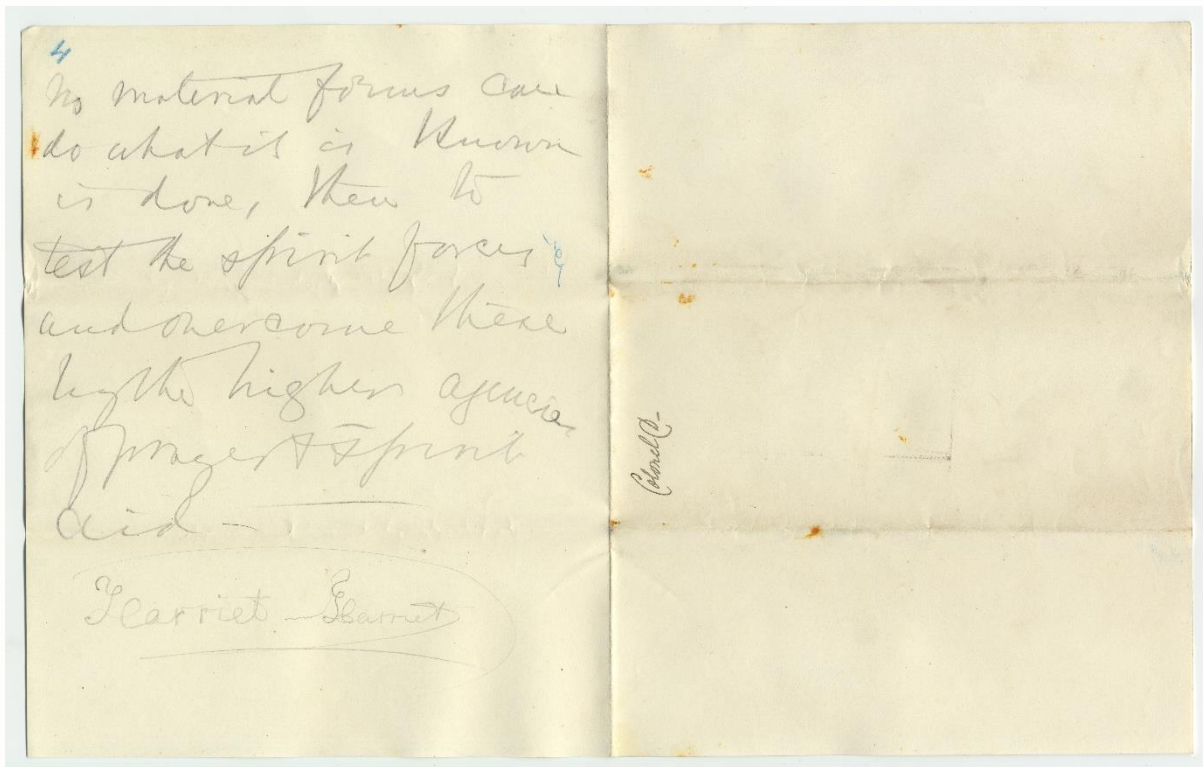 4
No material forms can
do what it is known
is done, then to
test the spirit forces
and overcome these
by the higher agencies
of prayer & spirit
aid –
Harriet – Harriet
Colonel C–